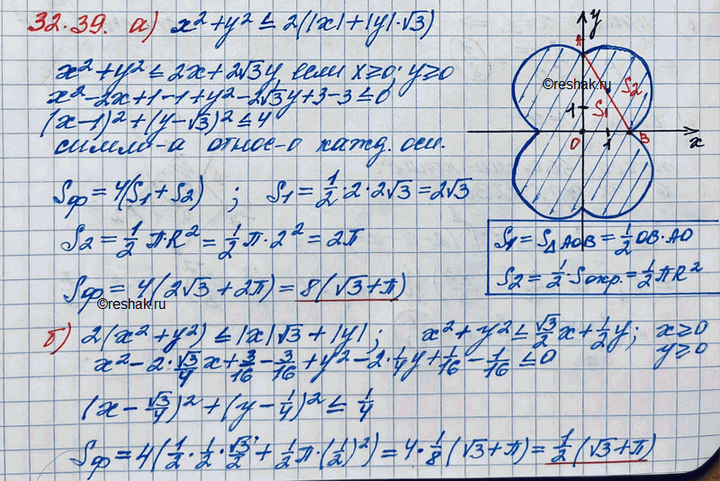 32.39. а) x²+y² ≤ 2(|x|+|y|·√3)
x²+y² ≤ 2x+2√3y, если x≥0; y≥0
x²-2x+1-1+y²-2√3y+3-3≤0
(x-1)²+(y-√3)²≤4
симм-а относ-о кажд. оси.
Sф = 4(S₁+S₂) ; S₁ = 1/2·2·2√3 = 2√3
S₂ = 1/2 π·R² = 1/2 π·2² = 2π
Sф = 4(2√3+2π) = 8(√3+π)
©reshak.ru
y
A
©reshak.ru
S₂
1
S₁
O
1
B
x
S₁ = S△AOB = 1/2 OB·AO
S₂ = 1/2·Sокр. = 1/2 πR²
б) 2(x²+y²) ≤ |x|√3+|y| ; x²+y² ≤ √3/2 x + 1/2 y ; x≥0
y≥0
x²-2·√3/4 x+3/16-3/16+y²-2·1/4 y+1/16-1/16≤0
(x-√3/4)²+(y-1/4)²≤1/4
Sф = 4(1/2·1/2·√3/2+1/2π·(1/2)²) = 4·1/8(√3+π) = 1/2(√3+π)